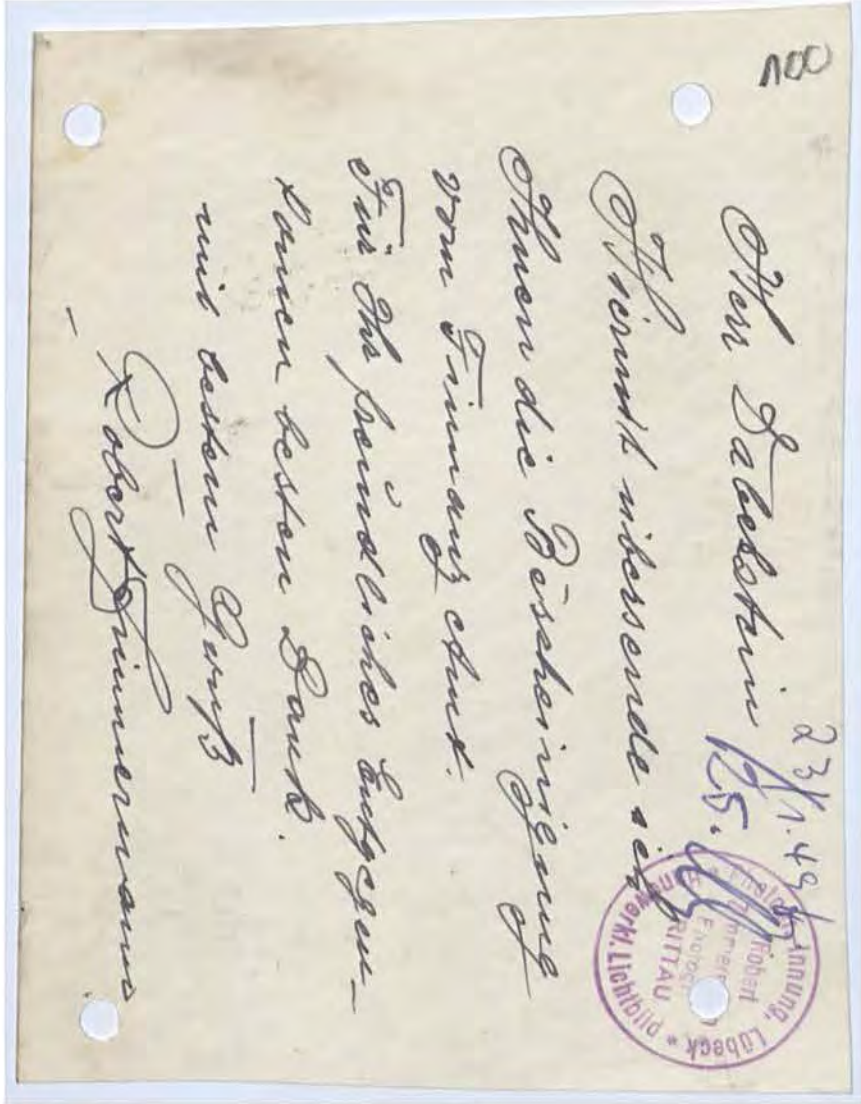 100
23/1.49
Herr Dabelstein
Hiermit übersende ich
Ihnen die Bescheinigung
vom Finanzamt.
Für Ihr freundliches Entgegen-
komen besten Dank.
mit bestem Gruß
Robert Timmermann
Innung, Lübeck * Handwerkl. Lichtbild *
Robert
RITTAU